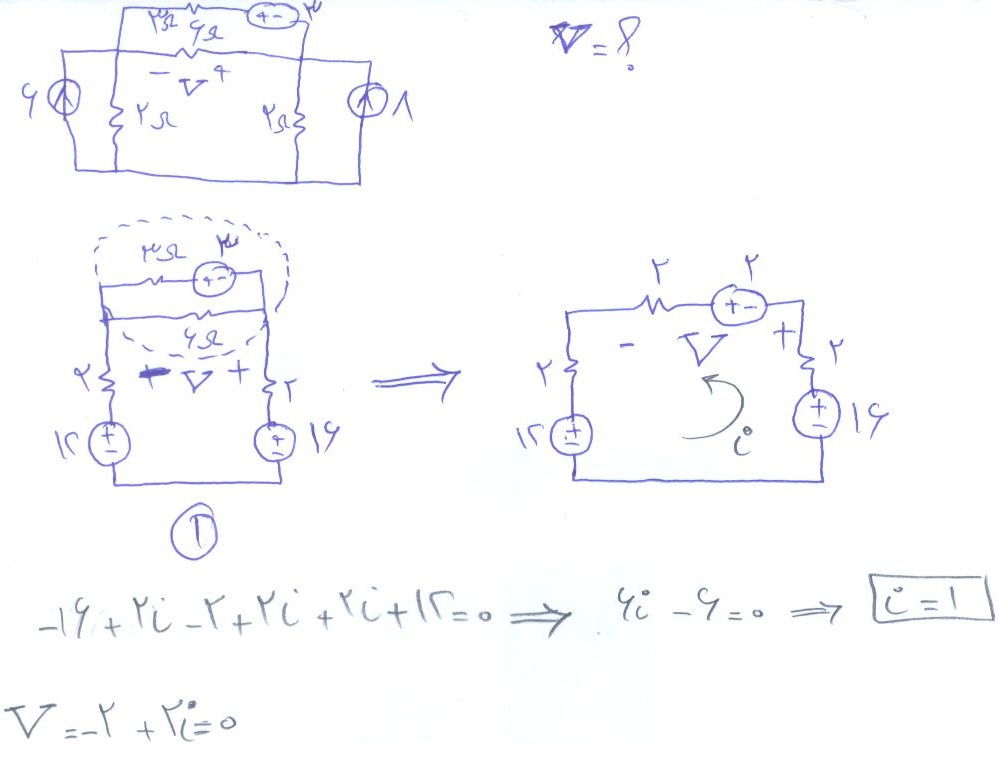 ۳Ω ۳
V = ?
۶Ω
- V +
۶ ۲Ω ۲Ω ۸
۳Ω ۳
۶Ω
۲ + V + ۲
۱۲ + - + - ۱۶
①
⟹
۲ ۲
+ -
۲ - V + ۲
۱۲ + - i + - ۱۶
-۱۶ + ۲i - ۲ + ۲i + ۲i + ۱۲ = ۰ ⟹ ۶i - ۶ = ۰ ⟹ i = ۱
V = -۲ + ۲i = ۰